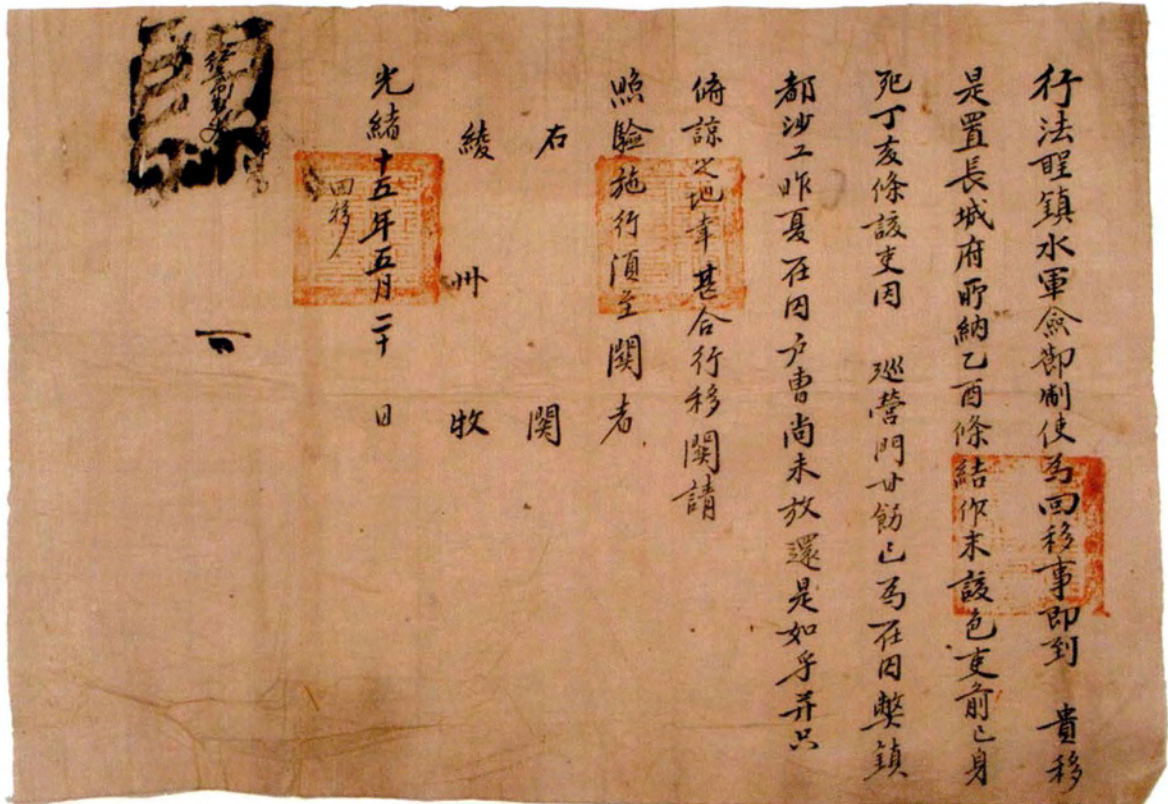 行法聖鎮水軍僉節制使爲回移事即到 貴移
是置長城府所納乙酉條結作未該色吏前已身
死丁亥條該吏因 巡營門甘飭已爲在囚弊鎮
都沙工昨夏在囚戶曹尚未放還是如乎並只
俯諒之地幸甚合行移關請
照驗施行須至關者
右 關
綾州牧
光緒十五年五月二十日
回移